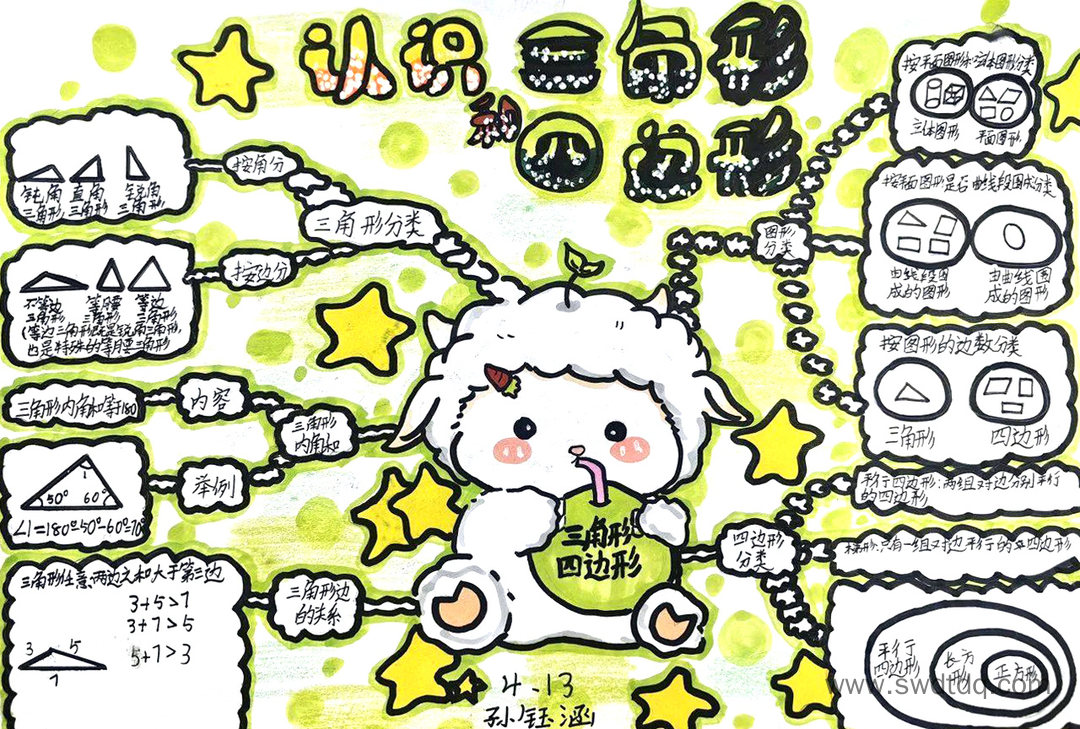 认识三角形
和四边形
三角形分类
按角分
钝角 直角 锐角
三角形 三角形 三角形
按边分
不等边 等腰 等边
三角形 三角形 三角形
(等边三角形既是锐角三角形,
也是特殊的等腰三角形
三角形
内角和
内容
三角形内角和等于180
举例
1
50° 60°
∠1=180°-50°-60°=70°
三角形边
的关系
三角形任意两边之和大于第三边
3+5>7
3+7>5
5+7>3
3 5
7
图形
分类
按平面图形和立体图形分类
立体图形 平面图形
按平面图形是否由线段围成分类
由线段围
成的图形
由曲线围
成的图形
按图形的边数分类
三角形 四边形
四边形
分类
平行四边形:两组对边分别平行
的四边形
梯形:只有一组对边平行的四边形
平行
四边形
长方
形
正方形
三角形
四边形
4.13
孙钰涵
www.swdtdq.com